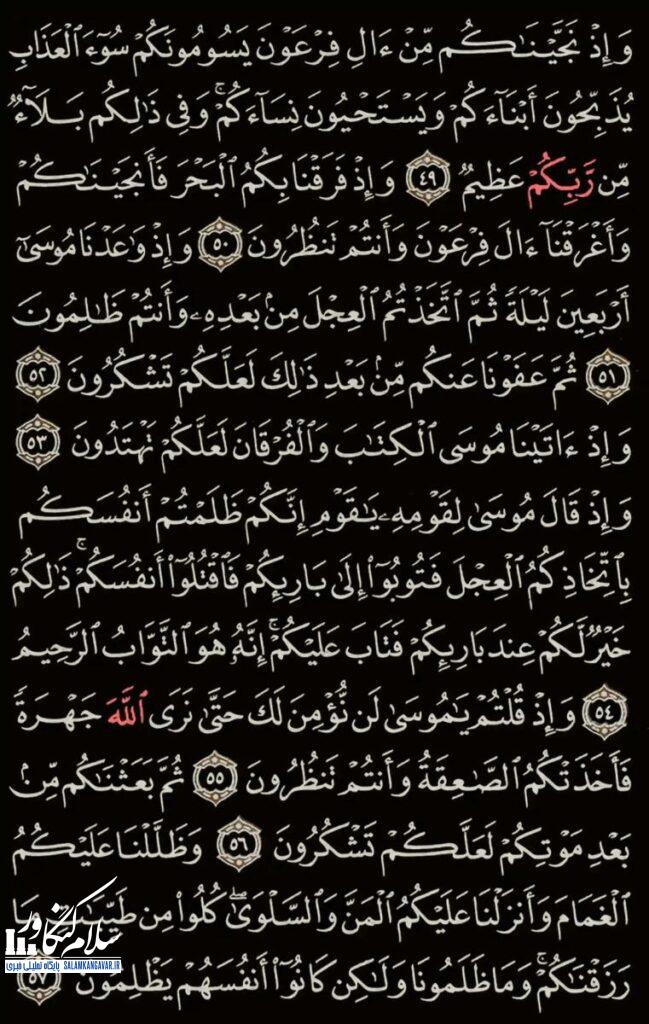 وَإِذْ نَجَّيْنَٰكُم مِّنْ ءَالِ فِرْعَوْنَ يَسُومُونَكُمْ سُوٓءَ ٱلْعَذَابِ
يُذَبِّحُونَ أَبْنَآءَكُمْ وَيَسْتَحْيُونَ نِسَآءَكُمْ ۚ وَفِى ذَٰلِكُم بَلَآءٌ
مِّن رَّبِّكُمْ عَظِيمٌ ٤٩ وَإِذْ فَرَقْنَا بِكُمُ ٱلْبَحْرَ فَأَنجَيْنَٰكُمْ
وَأَغْرَقْنَآ ءَالَ فِرْعَوْنَ وَأَنتُمْ تَنظُرُونَ ٥٠ وَإِذْ وَٰعَدْنَا مُوسَىٰٓ
أَرْبَعِينَ لَيْلَةً ثُمَّ ٱتَّخَذْتُمُ ٱلْعِجْلَ مِنۢ بَعْدِهِۦ وَأَنتُمْ ظَٰلِمُونَ
٥١ ثُمَّ عَفَوْنَا عَنكُم مِّنۢ بَعْدِ ذَٰلِكَ لَعَلَّكُمْ تَشْكُرُونَ ٥٢
وَإِذْ ءَاتَيْنَا مُوسَى ٱلْكِتَٰبَ وَٱلْفُرْقَانَ لَعَلَّكُمْ تَهْتَدُونَ ٥٣
وَإِذْ قَالَ مُوسَىٰ لِقَوْمِهِۦ يَٰقَوْمِ إِنَّكُمْ ظَلَمْتُمْ أَنفُسَكُم
بِٱتِّخَاذِكُمُ ٱلْعِجْلَ فَتُوبُوٓا۟ إِلَىٰ بَارِئِكُمْ فَٱقْتُلُوٓا۟ أَنفُسَكُمْ ۚ ذَٰلِكُمْ
خَيْرٌ لَّكُمْ عِندَ بَارِئِكُمْ فَتَابَ عَلَيْكُمْ ۚ إِنَّهُۥ هُوَ ٱلتَّوَّابُ ٱلرَّحِيمُ
٥٤ وَإِذْ قُلْتُمْ يَٰمُوسَىٰ لَن نُّؤْمِنَ لَكَ حَتَّىٰ نَرَى ٱللَّهَ جَهْرَةً
فَأَخَذَتْكُمُ ٱلصَّٰعِقَةُ وَأَنتُمْ تَنظُرُونَ ٥٥ ثُمَّ بَعَثْنَٰكُم مِّنۢ
بَعْدِ مَوْتِكُمْ لَعَلَّكُمْ تَشْكُرُونَ ٥٦ وَظَلَّلْنَا عَلَيْكُمُ
ٱلْغَمَامَ وَأَنزَلْنَا عَلَيْكُمُ ٱلْمَنَّ وَٱلسَّلْوَىٰ ۖ كُلُوا۟ مِن طَيِّبَٰتِ مَا
رَزَقْنَٰكُمْ ۖ وَمَا ظَلَمُونَا وَلَٰكِن كَانُوٓا۟ أَنفُسَهُمْ يَظْلِمُونَ ٥٧
سلام کنگاور
پایگاه تحلیلی خبری SALAMKANGAVAR.IR